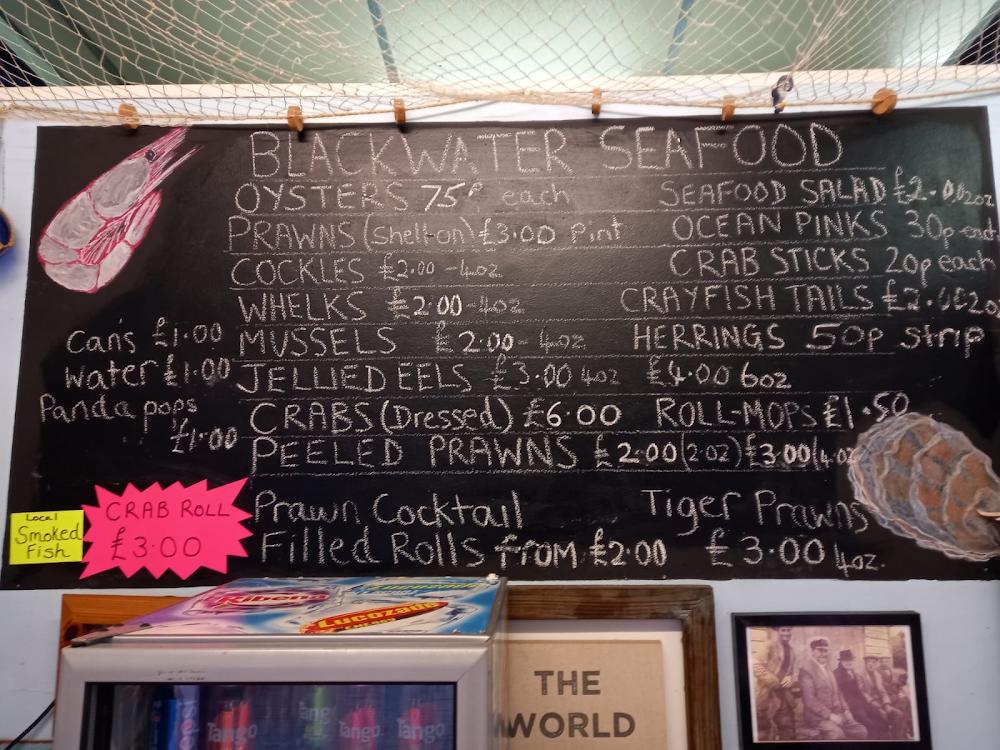 BLACKWATER SEAFOOD
OYSTERS 75P each
PRAWNS (shell-on) £3.00 Pint
COCKLES £2.00 - 4oz
WHELKS £2.00 - 4oz
MUSSELS £2.00 - 4oz
JELLIED EELS £3.00 4oz £4.00 6oz
CRABS (Dressed) £6.00
PEELED PRAWNS £2.00 (2oz) £3.00 (4oz
SEAFOOD SALAD £2.00 2oz
OCEAN PINKS 30p each
CRAB STICKS 20p each
CRAYFISH TAILS £2.00 2oz
HERRINGS 50p strip
ROLL-MOPS £1.50
Cans £1.00
Water £1.00
Panda pops
£1.00
Local
Smoked
Fish
CRAB ROLL
£3.00
Prawn Cocktail
Filled Rolls from £2.00
Tiger Prawns
£3.00 4oz.
Ribena
Lucozade
ENERGY
Tango
Tango
Tango
Tango
THE
WORLD